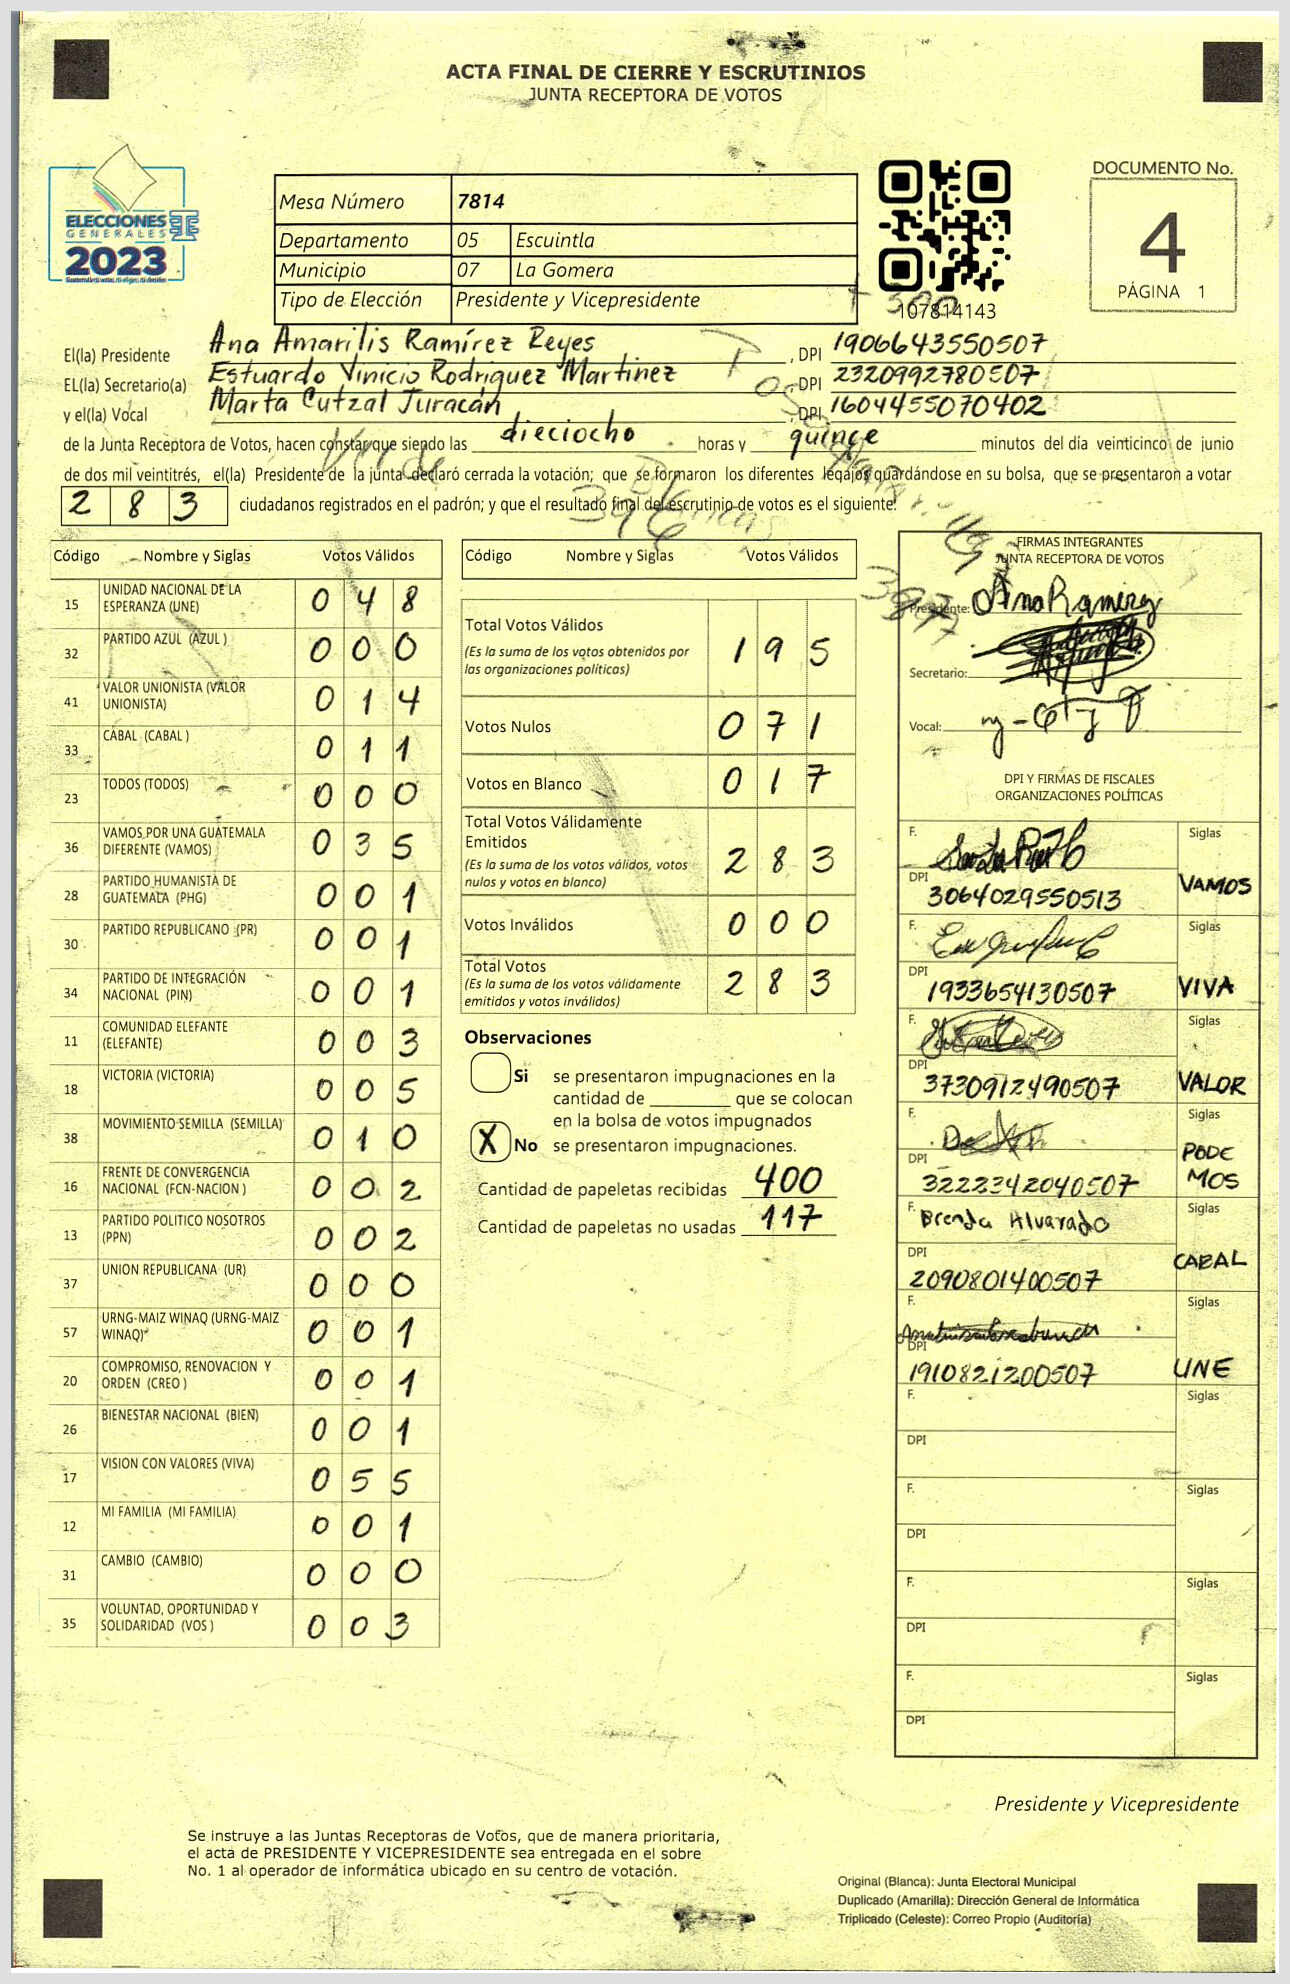 ACTA FINAL DE CIERRE Y ESCRUTINIOS
JUNTA RECEPTORA DE VOTOS
ELECCIONES
GENERALES
2023
Mesa Número 7814
Departamento 05 Escuintla
Municipio 07 La Gomera
Tipo de Elección Presidente y Vicepresidente
107814143
DOCUMENTO No.
4
PÁGINA 1
El(la) Presidente Ana Amarilis Ramírez Reyes , DPI 1906643550507
EL(la) Secretario(a) Estuardo Vinicio Rodríguez Martínez , DPI 2320992780507
y el(la) Vocal Marta Cutzal Turacán , DPI 1604455070402
de la Junta Receptora de Votos, hacen constar que siendo las dieciocho horas y quince minutos del día veinticinco de junio
de dos mil veintitrés, el(la) Presidente de la junta declaró cerrada la votación; que se formaron los diferentes legajos guardándose en su bolsa, que se presentaron a votar
283 ciudadanos registrados en el padrón; y que el resultado final del escrutinio de votos es el siguiente:
Código Nombre y Siglas Votos Válidos
15 UNIDAD NACIONAL DE LA ESPERANZA (UNE) 0 4 8
32 PARTIDO AZUL (AZUL ) 0 0 0
41 VALOR UNIONISTA (VALOR UNIONISTA) 0 1 4
33 CABAL (CABAL ) 0 1 1
23 TODOS (TODOS) 0 0 0
36 VAMOS POR UNA GUATEMALA DIFERENTE (VAMOS) 0 3 5
28 PARTIDO HUMANISTA DE GUATEMALA (PHG) 0 0 1
30 PARTIDO REPUBLICANO (PR) 0 0 1
34 PARTIDO DE INTEGRACIÓN NACIONAL (PIN) 0 0 1
11 COMUNIDAD ELEFANTE (ELEFANTE) 0 0 3
18 VICTORIA (VICTORIA) 0 0 5
38 MOVIMIENTO SEMILLA (SEMILLA) 0 1 0
16 FRENTE DE CONVERGENCIA NACIONAL (FCN-NACION ) 0 0 2
13 PARTIDO POLITICO NOSOTROS (PPN) 0 0 2
37 UNION REPUBLICANA (UR) 0 0 0
57 URNG-MAIZ WINAQ (URNG-MAIZ WINAQ) 0 0 1
20 COMPROMISO, RENOVACION Y ORDEN (CREO ) 0 0 1
26 BIENESTAR NACIONAL (BIEN) 0 0 1
17 VISION CON VALORES (VIVA) 0 5 5
12 MI FAMILIA (MI FAMILIA) 0 0 1
31 CAMBIO (CAMBIO) 0 0 0
35 VOLUNTAD, OPORTUNIDAD Y SOLIDARIDAD (VOS ) 0 0 3
Código Nombre y Siglas Votos Válidos
Total Votos Válidos 1 9 5
(Es la suma de los votos obtenidos por
las organizaciones políticas)
Votos Nulos 0 7 1
Votos en Blanco 0 1 7
Total Votos Válidamente
Emitidos 2 8 3
(Es la suma de los votos válidos, votos
nulos y votos en blanco)
Votos Inválidos 0 0 0
Total Votos 2 8 3
(Es la suma de los votos válidamente
emitidos y votos inválidos)
Observaciones
Si se presentaron impugnaciones en la
cantidad de ________ que se colocan
en la bolsa de votos impugnados
X No se presentaron impugnaciones.
Cantidad de papeletas recibidas 400
Cantidad de papeletas no usadas 117
FIRMAS INTEGRANTES
JUNTA RECEPTORA DE VOTOS
Presidente: Ana Ramírez
Secretario:
Vocal:
DPI Y FIRMAS DE FISCALES
ORGANIZACIONES POLÍTICAS
F. Siglas
DPI 3064029550513 VAMOS
F. Siglas
DPI 1933654130507 VIVA
F. Siglas
DPI 3730912490507 VALOR
F. Siglas
DPI 3222342040507 PODEMOS
F. Brenda Alvarado Siglas
DPI 2090801400507 CABAL
F. Siglas
DPI 1910821200507 UNE
F. Siglas
DPI
F. Siglas
DPI
F. Siglas
DPI
F. Siglas
DPI
Presidente y Vicepresidente
Se instruye a las Juntas Receptoras de Votos, que de manera prioritaria,
el acta de PRESIDENTE Y VICEPRESIDENTE sea entregada en el sobre
No. 1 al operador de informática ubicado en su centro de votación.
Original (Blanca): Junta Electoral Municipal
Duplicado (Amarilla): Dirección General de Informática
Triplicado (Celeste): Correo Propio (Auditoría)